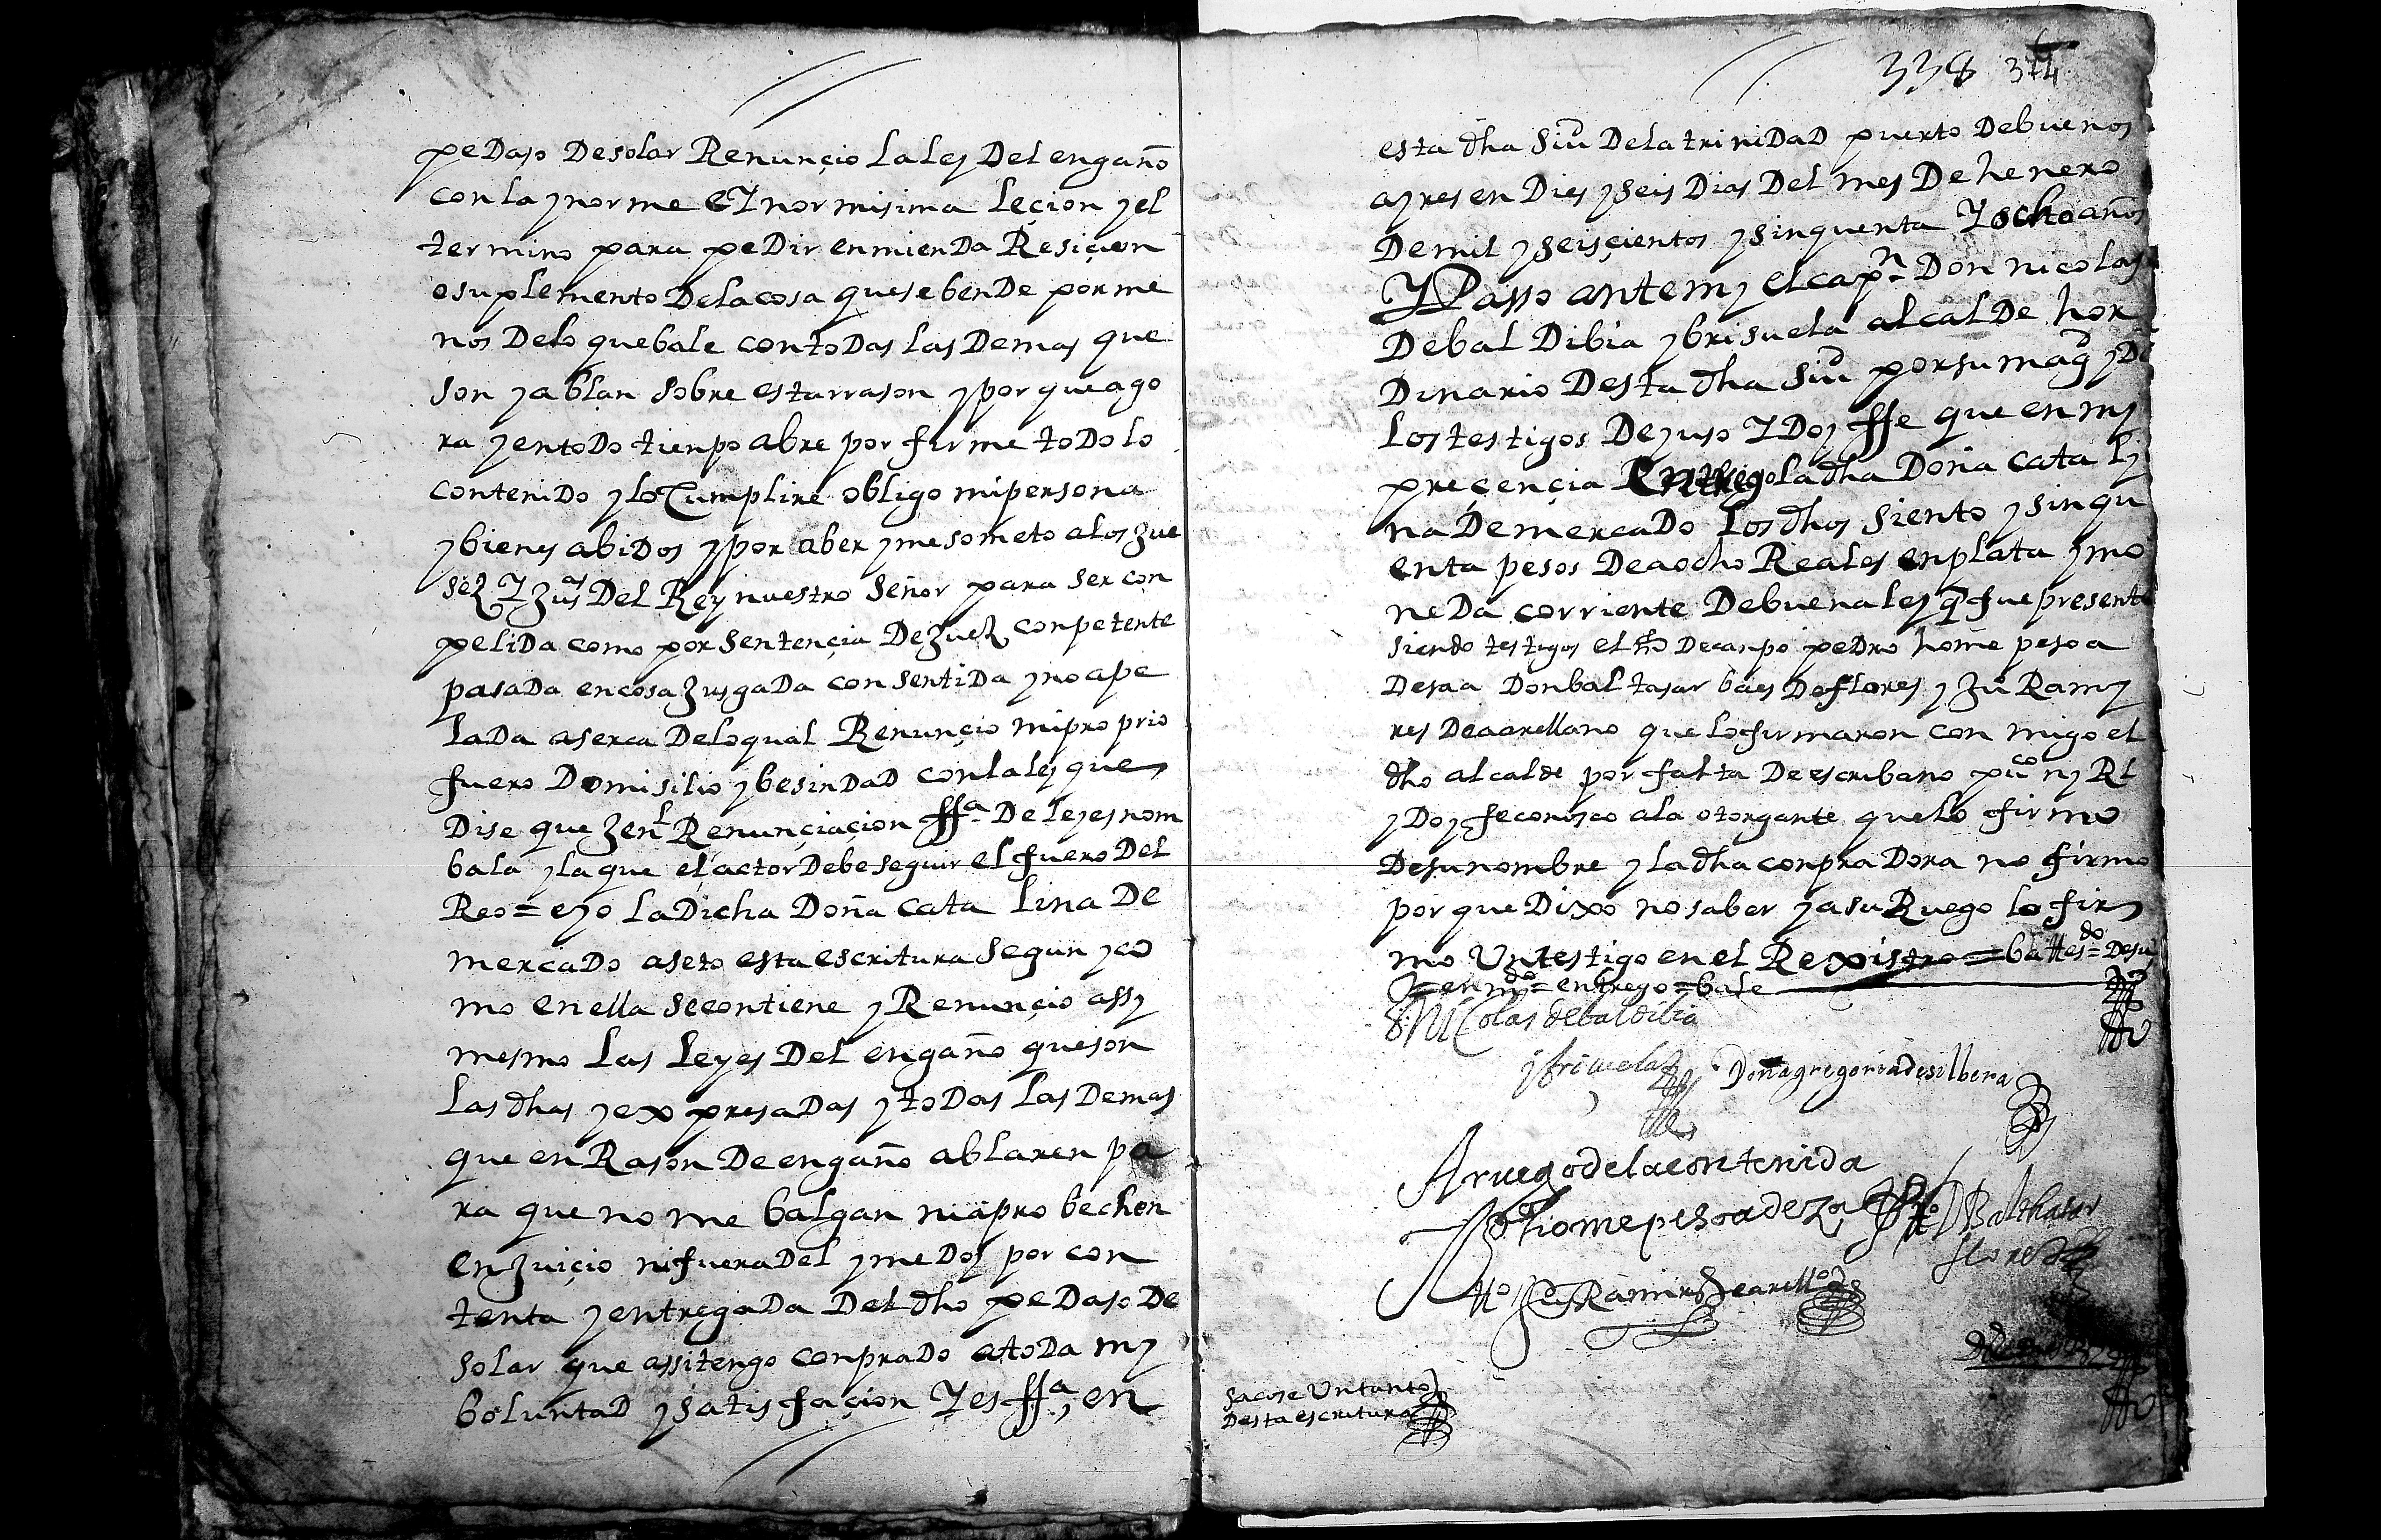 pedaso de solar Renunçio la ley del engaño
con la ynorme e Ynormisima leçion y el
termino para pedir enmienda Resiçion
o suplemento de la cosa que se bende por me
nos de lo que bale con todas las demas que
son y ablan sobre esta rrason y por que ago
ra y en todo tienpo abre por firme todo lo
contenido y lo Cumplire obligo mi persona
y bienes abidos y por aber y me someto a los Jue
ses Y Jus.as del Rey nuestro Señor para ser con
pelida como por sentençia de Jues conpetente
pasada en cosa Jusgada consentida y no ape
lada aserca de lo qual Renunçio mi proprio
fuero domisilio y besindad con la ley que
dise que Jen.l Renunçiaçion ffa de leyes non
bala y la que el actor debe seguir el fuero del
Reo = e yo la dicha Doña Catalina de
mercado aseto esta escritura segun y co
mo en ella se contiene y Renunçio assy
mesmo las leyes del engaño que son
las dhas y expresadas y todas las demas
que en Rason de engaño ablaren pa
ra que no me balgan ni aprobechen
en Juiçio ni fuera del y me doy por con
tenta y entregada del dho pedaso de
solar que assi tengo conprado a toda my
boluntad y satisfaçion Y es ffa en
338 374
esta dha Siud de la trinidad puerto de buenos
ayres en dies y seis dias del mes de henero
de mil y seisçientos y sinquenta Y ocho años
Y Passo ante my el cap.n Don nicolas
de bal dibia y brisuela alcalde hor
dinario desta dha Siud por su magd y de
los testigos de yuso Y doy ffe que en my
preçençia Entrego la dha Doña cataly
na de mercado los dhos siento y sinqu
enta pesos de a ocho Reales en plata y mo
neda corriente de buena ley q fue presente
siendo testigos el de canpo pedro home pesoa
desaa Don baltasar baes de flores y Ju.o Ramy
res de aarellano que lo firmaron con migo el
dho alcalde por falta de escribano pu.co ny Rl
y doy fe conosco a la otorgante que lo firmo
de su nombre y la dha conpradora no firmo
por que dixo no saber y a su Ruego lo fir
mo Un testigo en el Rexistro = ba ttes.do = de su
= enm.do = entrego = bale
D. Nicolas de baldibia
y brisuela
Doña gregoria de silbera
A ruego de la contenida
P.o home pesoa de Za
D Balthasar
flores
tt.o Ju.o Ramirs de arell.o
sacose Un tanto
desta escritura